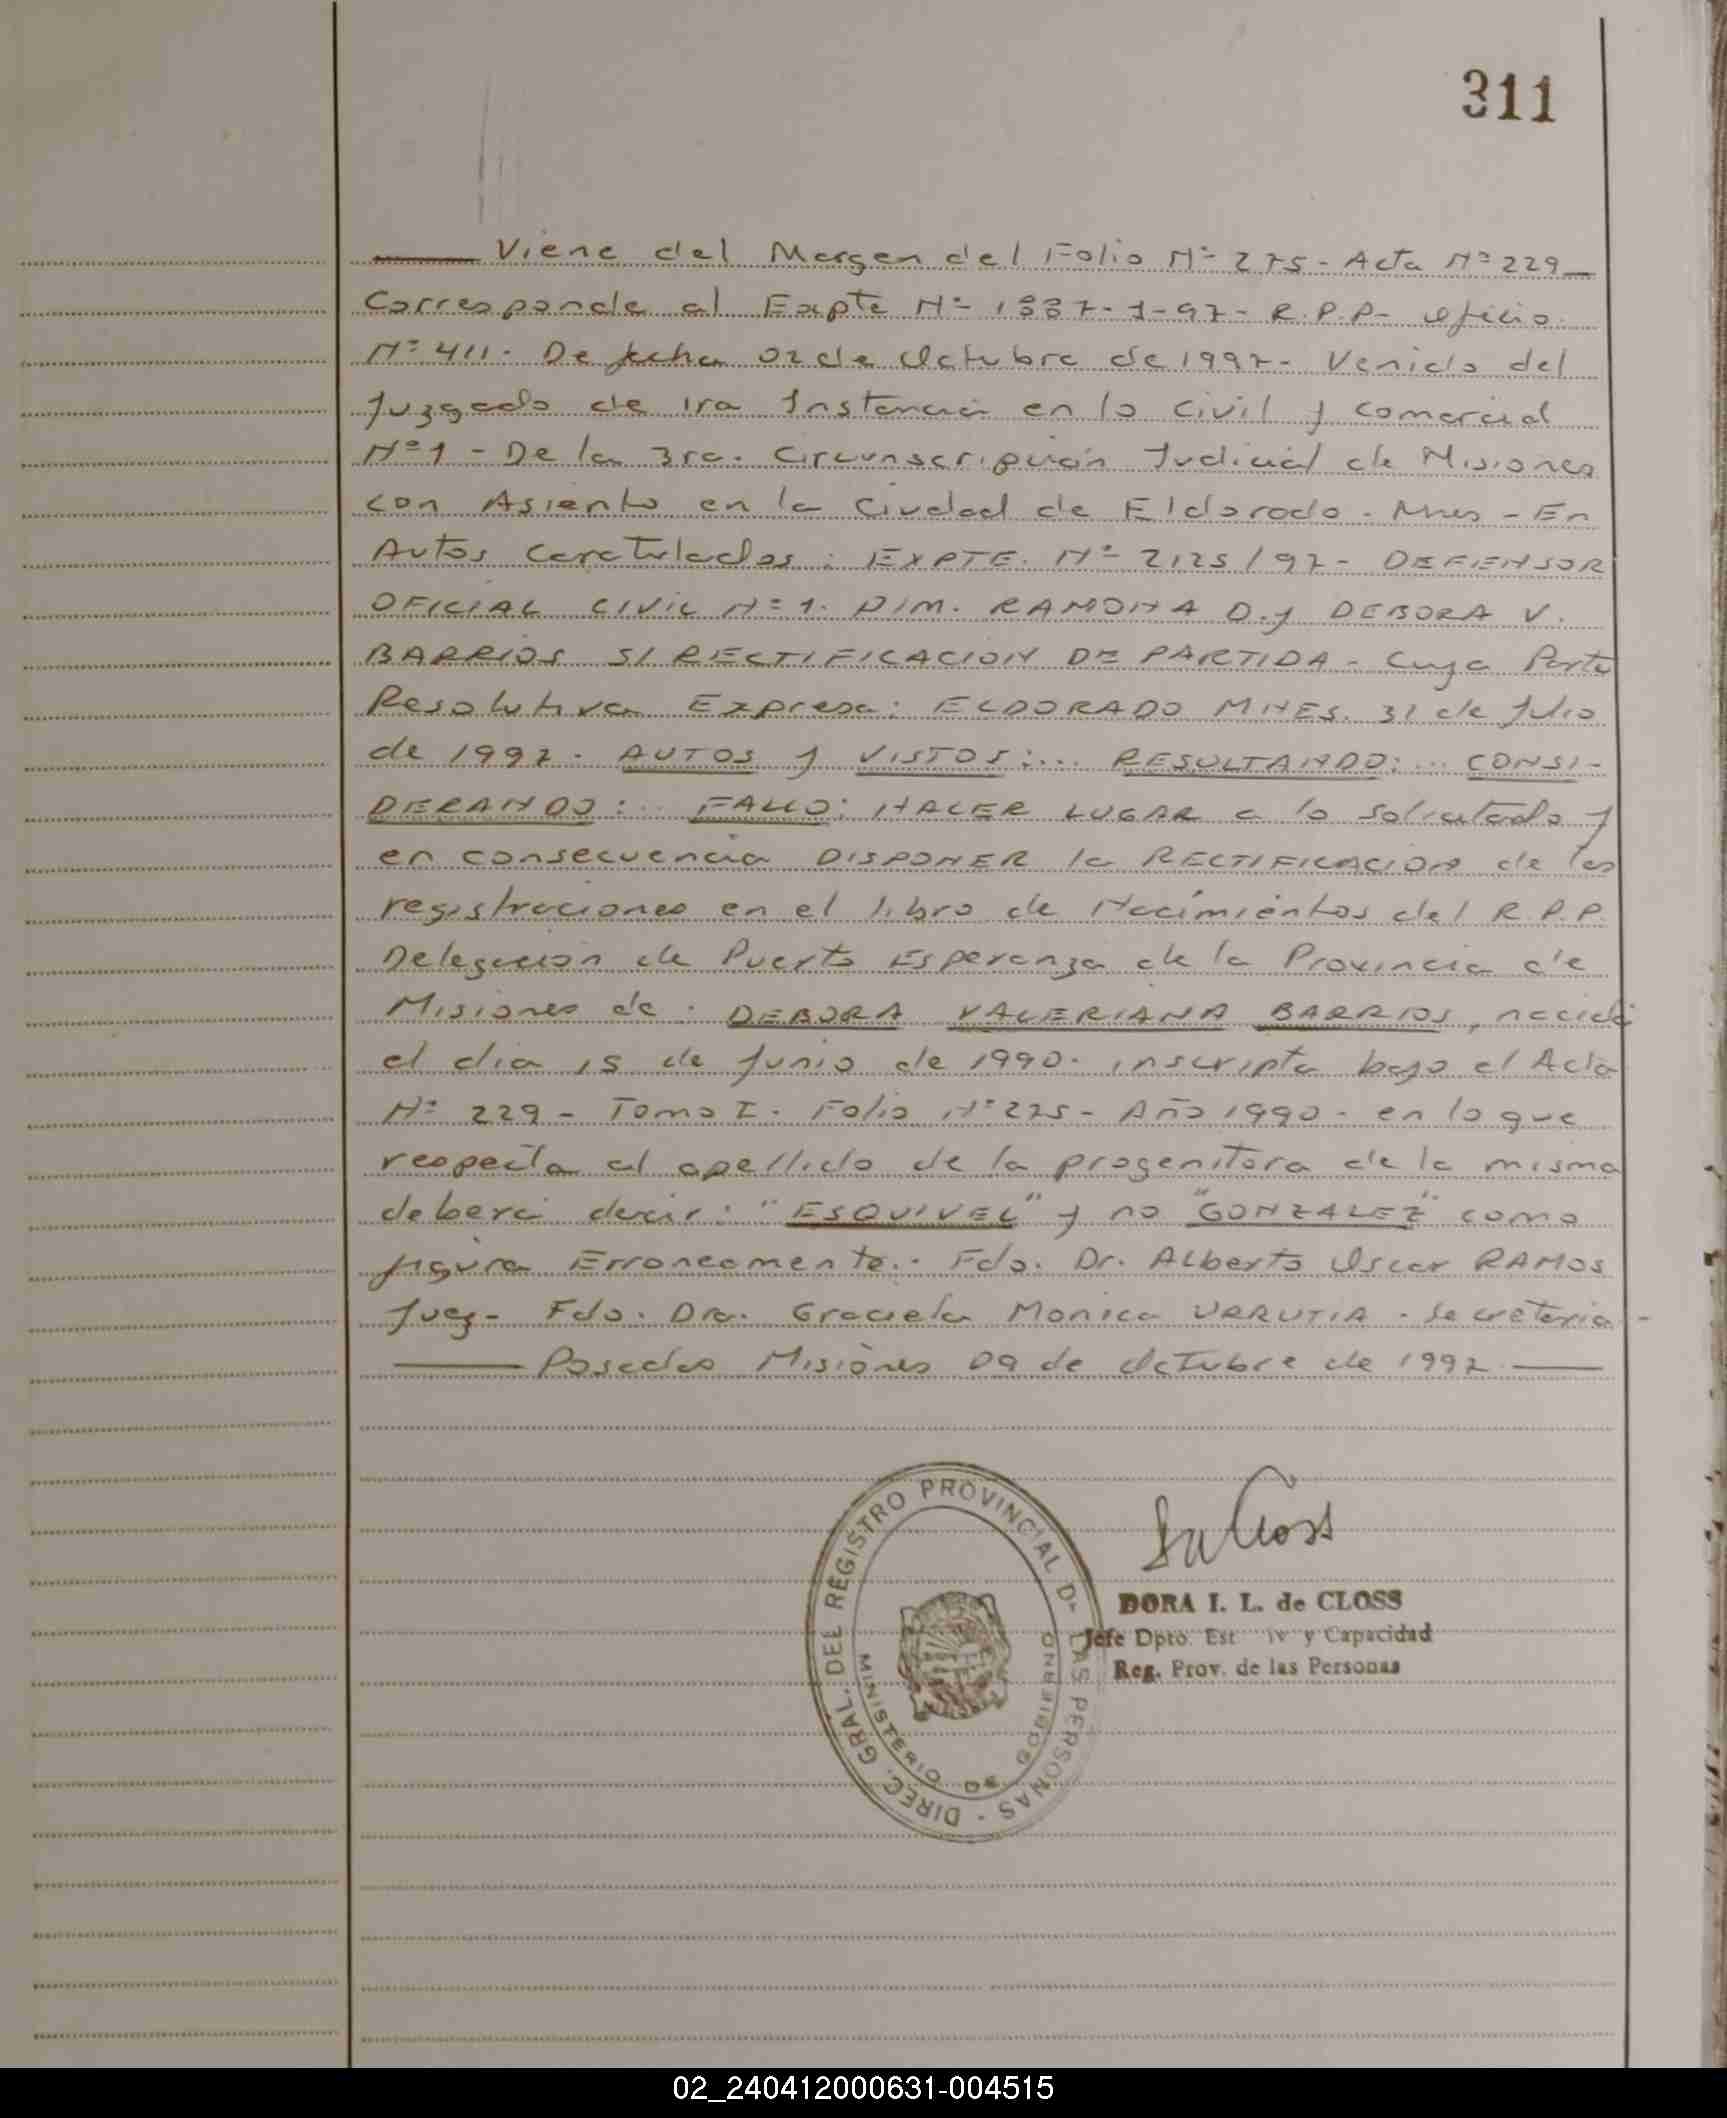 311
Viene del Margen del Folio Nº 275 - Acta Nº 229
Corresponde al Expte Nº 1337-J-97- R.P.P- Oficio
Nº 411. De fecha 02 de Octubre de 1997- Venido del
Juzgado de 1ra Instancia en lo Civil y Comercial
Nº 1 - De la 3ra. Circunscripción Judicial de Misiones
con Asiento en la Ciudad de Eldorado. Mnes - En
Autos Caratulados: EXPTE. Nº 2125/97- DEFENSOR
OFICIAL CIVIL Nº 1. P/M. RAMONA D. y DEBORA V.
BARRIOS S/ RECTIFICACION DE PARTIDA - Cuya Parte
Resolutiva Expresa: ELDORADO MNES. 31 de Julio
de 1997. AUTOS y VISTOS:... RESULTANDO:... CONSI-
DERANDO:... FALLO: HACER LUGAR a lo solicitado y
en consecuencia DISPONER la RECTIFICACION de las
registraciones en el libro de Nacimientos del R.P.P.
Delegación de Puerto Esperanza de la Provincia de
Misiones de. DEBORA VALERIANA BARRIOS, nacida
el dia 15 de Junio de 1990. inscripta bajo el Acta
Nº 229 - Tomo I. Folio Nº 275 - Año 1990. en lo que
respecta al apellido de la progenitora de la misma
deberá decir: "ESQUIVEL" y no "GONZALEZ" como
figura Erroneamente.- Fdo. Dr. Alberto Oscar RAMOS
Juez- Fdo. Dra. Graciela Monica URRUTIA - Secretaria -
Posadas Misiones 09 de Octubre de 1997.
DIREC. GRAL. DEL REGISTRO PROVINCIAL D- LAS PERSONAS -
MINISTERIO DE GOBIERNO
DORA I. L. de CLOSS
Jefe Dpto. Est iv y Capacidad
Reg. Prov. de las Personas
02_240412000631-004515